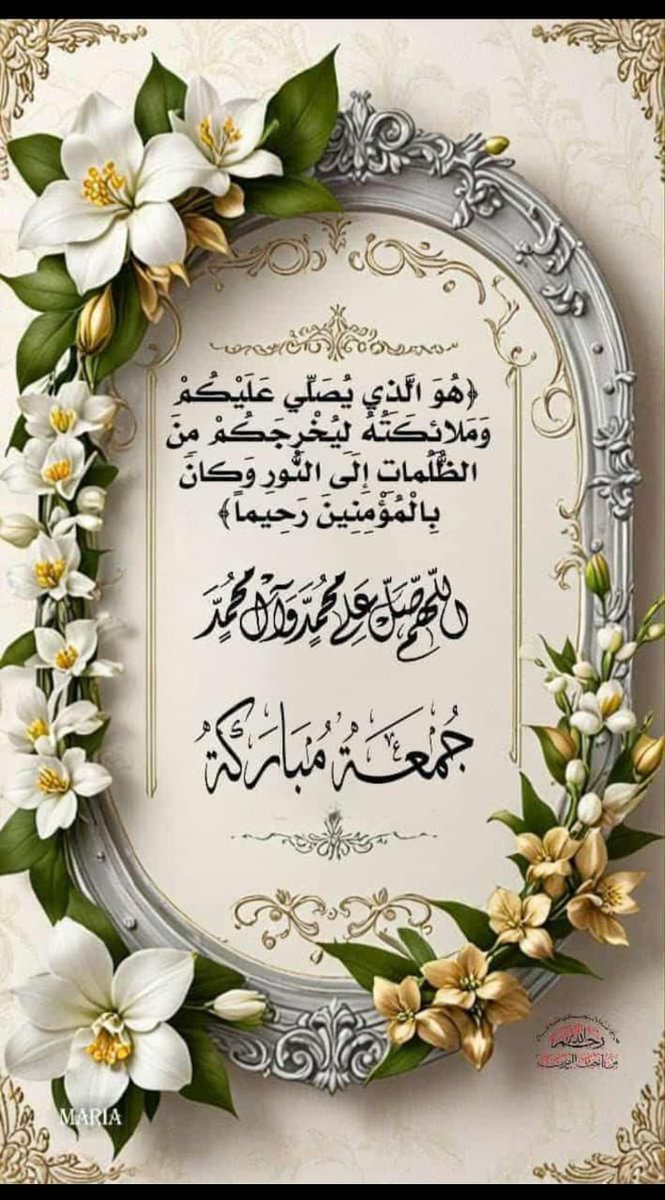 ﴿هُوَ الَّذي يُصَلّي عَلَيْكُمْ
وَمَلائِكَتُهُ لِيُخْرِجَكُمْ مِنَ
الظُّلُماتِ إِلَى النُّورِ وَكانَ
بِالْمُؤْمِنِينَ رَحِيماً﴾
اللّهمّ صَلِّ عَلى محُمَّدٍ وَآلِ محُمَّدٍ
جُمعَةٌ مُبَارَكَةٌ
رحم الله
من احيا
MARIA